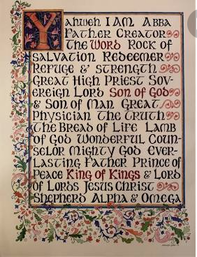 Yahweh I AM Abba
Father Creator
The Word Rock of
Salvation Redeemer
Refuge & Strength
Great High Priest Sov-
ereign Lord Son of God
& Son of Man Great
Physician The Truth
The Bread of Life Lamb
of God Wonderful Coun-
selor Mighty God Ever-
lasting Father Prince of
Peace King of Kings & Lord
of Lords Jesus Christ
Shepherd Alpha & Omega